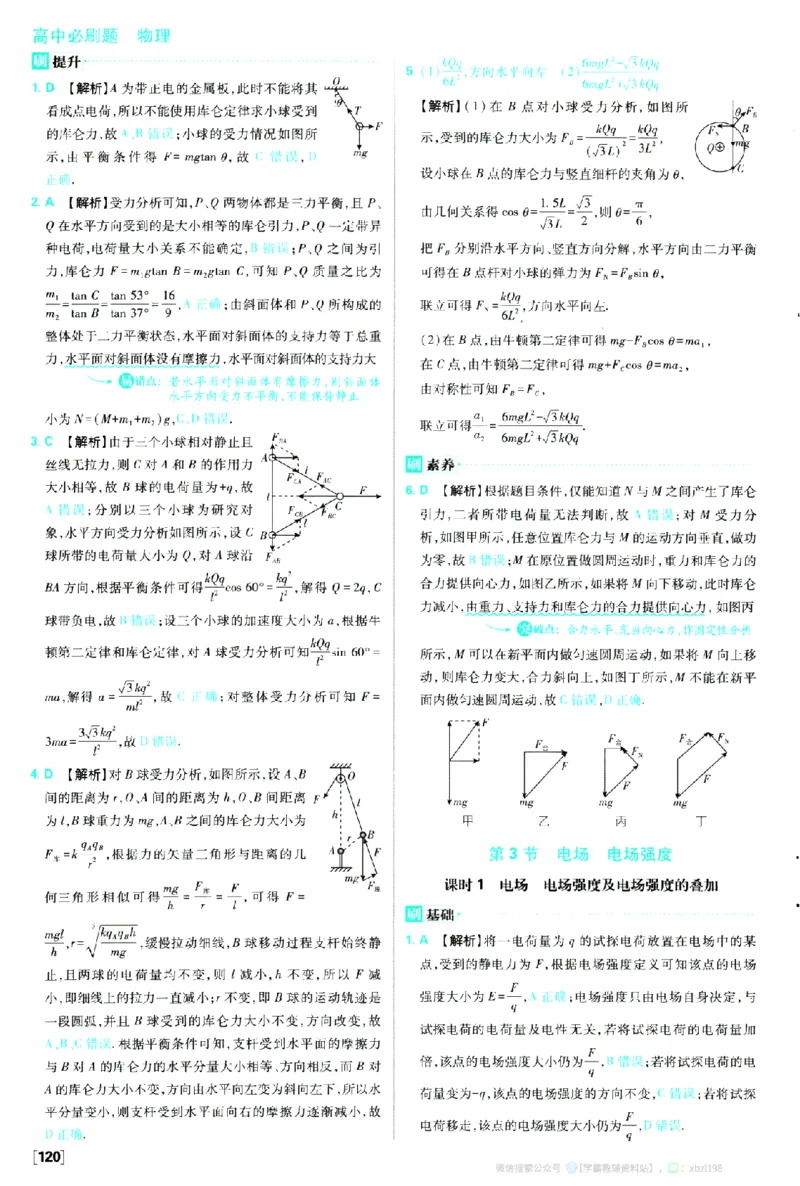 高中必刷题 物理
刷 提升
1. D 【解析】A 为带正电的金属板,此时不能将其
看成点电荷,所以不能使用库仑定律求小球受到
的库仑力,故 A、B 错误;小球的受力情况如图所
示,由平衡条件得 F= mgtan θ,故 C 错误,D
正确.
O
θ
T
F
mg
2. A 【解析】受力分析可知,P、Q 两物体都是三力平衡,且 P、
Q 在水平方向受到的是大小相等的库仑引力,P、Q 一定带异
种电荷,电荷量大小关系不能确定,B 错误;P、Q 之间为引
力,库仑力 F=m₁gtan B=m₂gtan C,可知 P、Q 质量之比为
m₁/m₂ = tan C/tan B = tan 53°/tan 37° = 16/9,A 正确;由斜面体和 P、Q 所构成的
整体处于二力平衡状态,水平面对斜面体的支持力等于总重
力,水平面对斜面体没有摩擦力,水平面对斜面体的支持力大
易错点: 若水平面对斜面体有摩擦力,则斜面体
水平方向受力不平衡,不能保持静止
小为 N=(M+m₁+m₂)g,C、D 错误.
3. C 【解析】由于三个小球相对静止且
丝线无拉力,则 C 对 A 和 B 的作用力
大小相等,故 B 球的电荷量为+q,故
A 错误;分别以三个小球为研究对
象,水平方向受力分析如图所示,设 C
球所带的电荷量大小为 Q,对 A 球沿
BA 方向,根据平衡条件可得 kQq/l² cos 60° = kq²/l²,解得 Q=2q,C
球带负电,故 B 错误;设三个小球的加速度大小为 a,根据牛
顿第二定律和库仑定律,对 A 球受力分析可知 kQq/l² sin 60° =
ma,解得 a = √3kq²/ml²,故 C 正确;对整体受力分析可知 F=
3ma = 3√3kq²/l²,故 D 错误.
F_BA
A
l
F_CA
F_AC
F
l
C
F_CB
F_BC
B
l
F_AB
4. D 【解析】对 B 球受力分析,如图所示,设 A、B
间的距离为 r,O、A 间的距离为 h,O、B 间距离
为 l,B 球重力为 mg,A、B 之间的库仑力大小为
F库=k q_Aq_B/r²,根据力的矢量三角形与距离的几
何三角形相似可得 mg/h = F库/r = F/l,可得 F =
mgl/h,r= ³√(kq_Aq_Bh/mg),缓慢拉动细线,B 球移动过程支杆始终静
止,且两球的电荷量均不变,则 l 减小,h 不变,所以 F 减
小,即细线上的拉力一直减小;r 不变,即 B 球的运动轨迹是
一段圆弧,并且 B 球受到的库仑力大小不变,方向改变,故
A、B、C 错误. 根据平衡条件可知,支杆受到水平面的摩擦力
与 B 对 A 的库仑力的水平分量大小相等、方向相反,而 B 对
A 的库仑力大小不变,方向由水平向左变为斜向左下,所以水
平分量变小,则支杆受到水平面向右的摩擦力逐渐减小,故
D 正确.
O
F
l
h
r
B
A
F
mg
F库
[120]
5. (1) kQq/6L²,方向水平向左 (2) (6mgL²-√3kQq)/(6mgL²+√3kQq)
【解析】(1) 在 B 点对小球受力分析,如图所
示,受到的库仑力大小为 F_B = kQq/(√3L)² = kQq/3L²,
设小球在 B 点的库仑力与竖直细杆的夹角为 θ,
由几何关系得 cos θ= 1.5L/√3L = √3/2,则 θ= π/6,
把 F_B 分别沿水平方向、竖直方向分解,水平方向由二力平衡
可得在 B 点杆对小球的弹力为 F_N=F_Bsin θ,
联立可得 F_N= kQq/6L²,方向水平向左.
(2)在 B 点,由牛顿第二定律可得 mg-F_Bcos θ=ma₁,
在 C 点,由牛顿第二定律可得 mg+F_Ccos θ=ma₂,
由对称性可知 F_B=F_C,
联立可得 a₁/a₂ = (6mgL²-√3kQq)/(6mgL²+√3kQq).
θ
F_B
F_N
B
Q
mg
C
刷 素养
6. D 【解析】根据题目条件,仅能知道 N 与 M 之间产生了库仑
引力,二者所带电荷量无法判断,故 A 错误;对 M 受力分
析,如图甲所示,任意位置库仑力与 M 的运动方向垂直,做功
为零,故 B 错误;M 在原位置做圆周运动时,重力和库仑力的
合力提供向心力,如图乙所示,如果将 M 向下移动,此时库仑
力减小,由重力、支持力和库仑力的合力提供向心力,如图丙
突破点: 合力水平,充当向心力,作图定性分析
所示,M 可以在新平面内做匀速圆周运动,如果将 M 向上移
动,则库仑力变大,合力斜向上,如图丁所示,M 不能在新平
面内做匀速圆周运动,故 C 错误,D 正确.
F
mg
甲
F合
F
mg
乙
F合
F_N
F
mg
丙
F合
F_N
F
mg
丁
第 3 节 电场 电场强度
课时 1 电场 电场强度及电场强度的叠加
刷 基础
1. A 【解析】将一电荷量为 q 的试探电荷放置在电场中的某
点,受到的静电力为 F,根据电场强度定义可知该点的电场
强度大小为 E= F/q,A 正确;电场强度只由电场自身决定,与
试探电荷的电荷量及电性无关,若将试探电荷的电荷量加
倍,该点的电场强度大小仍为 F/q,B 错误;若将试探电荷的电
荷量变为-q,该点的电场强度的方向不变,C 错误;若将试探
电荷移走,该点的电场强度大小仍为 F/q,D 错误.
微信搜索公众号 【学霸教辅资料站】, : xbzl198